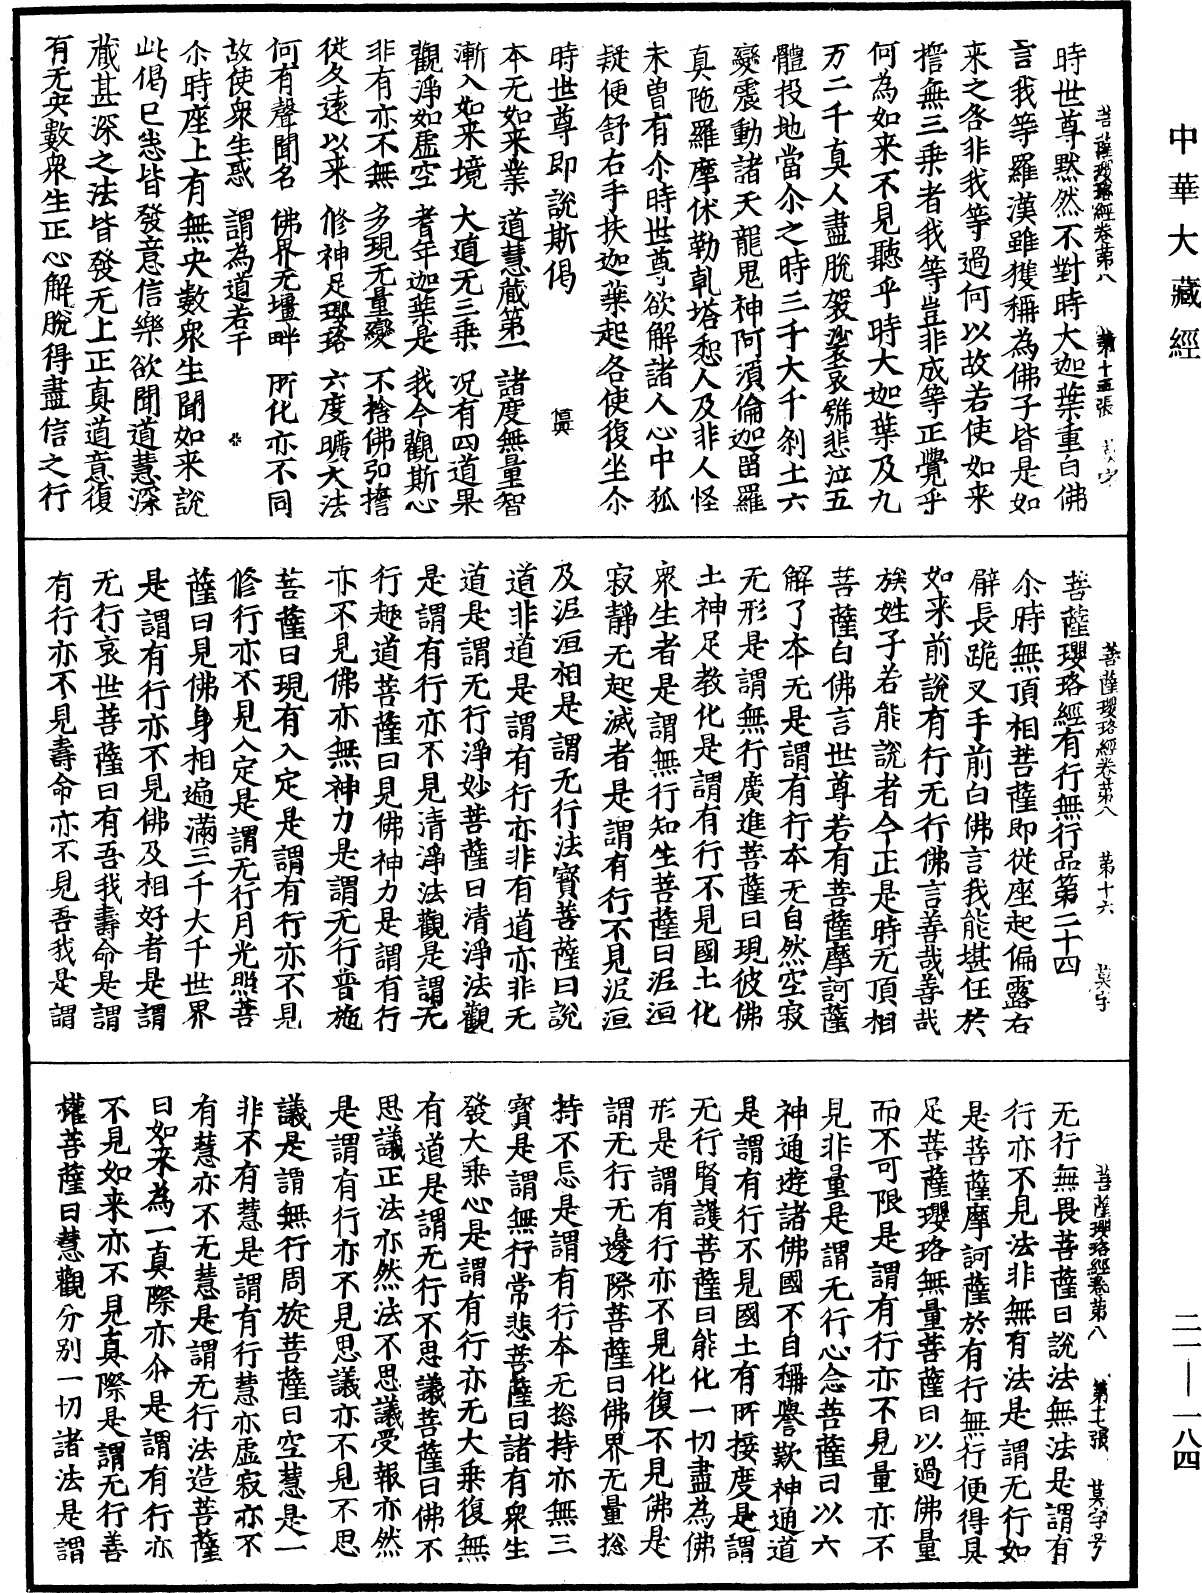 中華大藏經
菩薩瓔珞經卷第八 第十五張
時世尊默然不對時大迦葉重白佛
言我等羅漢雖獲稱為佛子皆是如
来之咎非我等過何以故若使如来
擔無三乗者我等豈非成等正覺乎
何為如来不見聽乎時大迦葉及九
万二千真人盡脫袈裟哀號悲泣五
體投地當尒之時三千大千剎土六
變震動諸天龍鬼神阿湏倫迦留羅
真陁羅摩休勒乹塔惒人及非人怪
未曽有尒時世尊欲解諸人心中狐
疑便舒右手扶迦葉起各使復坐尒
時世尊即説斯偈
本无如来業 道慧藏第一 諸度無量智
漸入如来境 大道无三乗 况有四道果
觀淨如虚空 耆年迦葉是 我今觀斯心
非有亦不無 多現无量變 不捨佛弘擔
従久遠以来 修神足瓔珞 六度曠大法
何有聲聞名 佛界无壃畔 所化亦不同
故使衆生惑 謂為道若干
尒時座上有無央數衆生聞如来説
此偈已悉皆發意信樂欲聞道慧深
藏甚深之法皆發无上正真道意復
有无央數衆生正心解脫得盡信之行
菩薩瓔珞經卷第八 第十六
菩薩瓔珞經有行無行品第二十四
尒時無頂相菩薩即從座起偏露右
臂長跪叉手前白佛言我能堪任於
如来前説有行无行佛言善哉善哉
族姓子若能説者今正是時无頂相
菩薩白佛言世尊若有菩薩摩訶薩
解了本无是謂有行本无自然空寂
无形是謂無行廣進菩薩曰現彼佛
土神足教化是謂有行不見國土化
衆生者是謂無行知生菩薩曰泥洹
寂靜无起滅者是謂有行不見泥洹
及泥洹相是謂无行法寳菩薩曰説
道非道是謂有行亦非有道亦非无
道是謂无行淨妙菩薩曰清淨法觀
是謂有行亦不見清淨法觀是謂无
行趣道菩薩曰見佛神力是謂有行
亦不見佛亦無神力是謂无行普施
菩薩曰現有入定是謂有行亦不見
修行亦不見入定是謂无行月光照菩
薩曰見佛身相遍滿三千大千世界
是謂有行亦不見佛及相好者是謂
无行哀世菩薩曰有吾我壽命是謂
有行亦不見壽命亦不見吾我是謂
菩薩瓔珞經卷第八 第十七張
无行無畏菩薩曰説法無法是謂有
行亦不見法非無有法是謂无行如
是菩薩摩訶薩於有行無行便得具
足菩薩瓔珞無量菩薩曰以過佛量
而不可限是謂有行亦不見量亦不
見非量是謂无行心念菩薩曰以六
神通遊諸佛國不自稱譽歎神通道
是謂有行不見國土有所接度是謂
无行賢護菩薩曰能化一切盡為佛
形是謂有行亦不見化復不見佛是
謂无行无邊際菩薩曰佛界无量捴
持不忘是謂有行本无捴持亦無三
寳是謂無行常悲菩薩曰諸有衆生
發大乗心是謂有行亦无大乗復無
有道是謂无行不思議菩薩曰佛不
思議正法亦然法不思議受報亦然
是謂有行亦不見思議亦不見不思
議是謂無行周旋菩薩曰空慧是一
非不有慧是謂有行慧亦虚寂亦不
有慧亦不无慧是謂无行法造菩薩
曰如来為一真際亦尒是謂有行亦
不見如来亦不見真際是謂无行善
權菩薩曰慧觀分别一切諸法是謂
二一—一八四